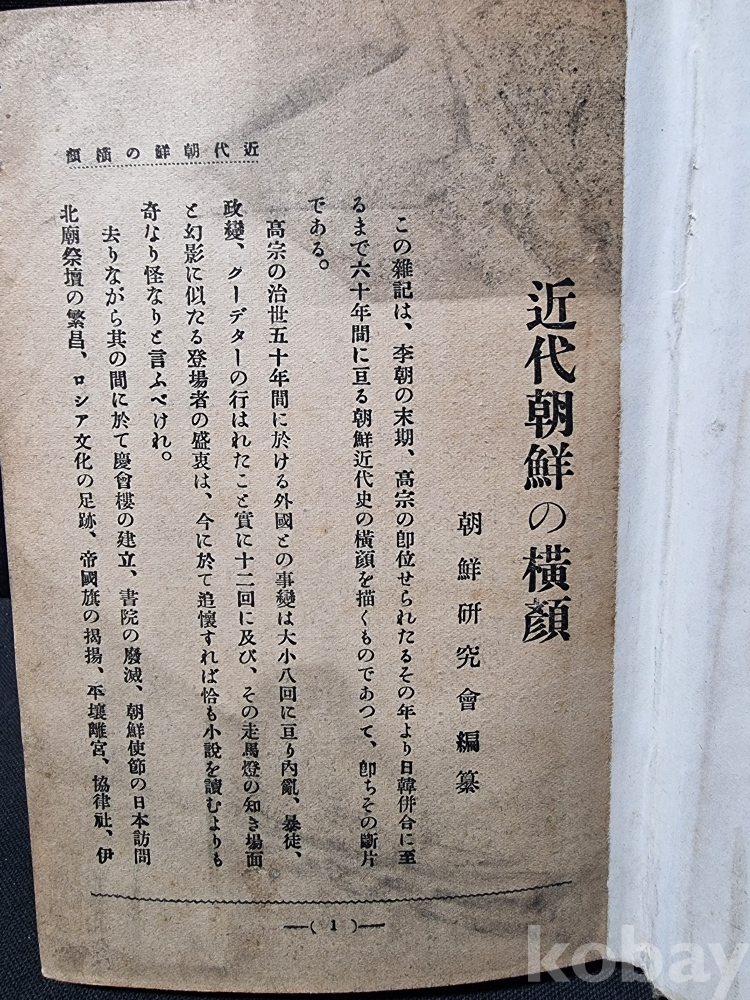 近代朝鮮の橫顏
近代朝鮮の橫顏
朝鮮硏究會編纂
この雜記は、李朝の末期、高宗の卽位せられたるその年より日韓併合に至
るまで六十年間に亘る朝鮮近代史の橫顏を描くものであつて、卽ちその斷片
である。
高宗の治世五十年間に於ける外國との事變は大小八回に亘り內亂、暴徒、
政變、クーデターの行はれたこと實に十二回に及び、その走馬燈の知き場面
と幻影に似たる登場者の盛衷は、今に於て追懷すれば恰も小說を讀むよりも
奇なり怪なりと言ふべけれ。
去りながら其の間に於て慶會樓の建立、書院の廢滅、朝鮮使節の日本訪問
北廟祭壇の繁昌、ロシア文化の足跡、帝國旗の揭揚、平壤離宮、協律社、伊
—( 1 )—
kobay